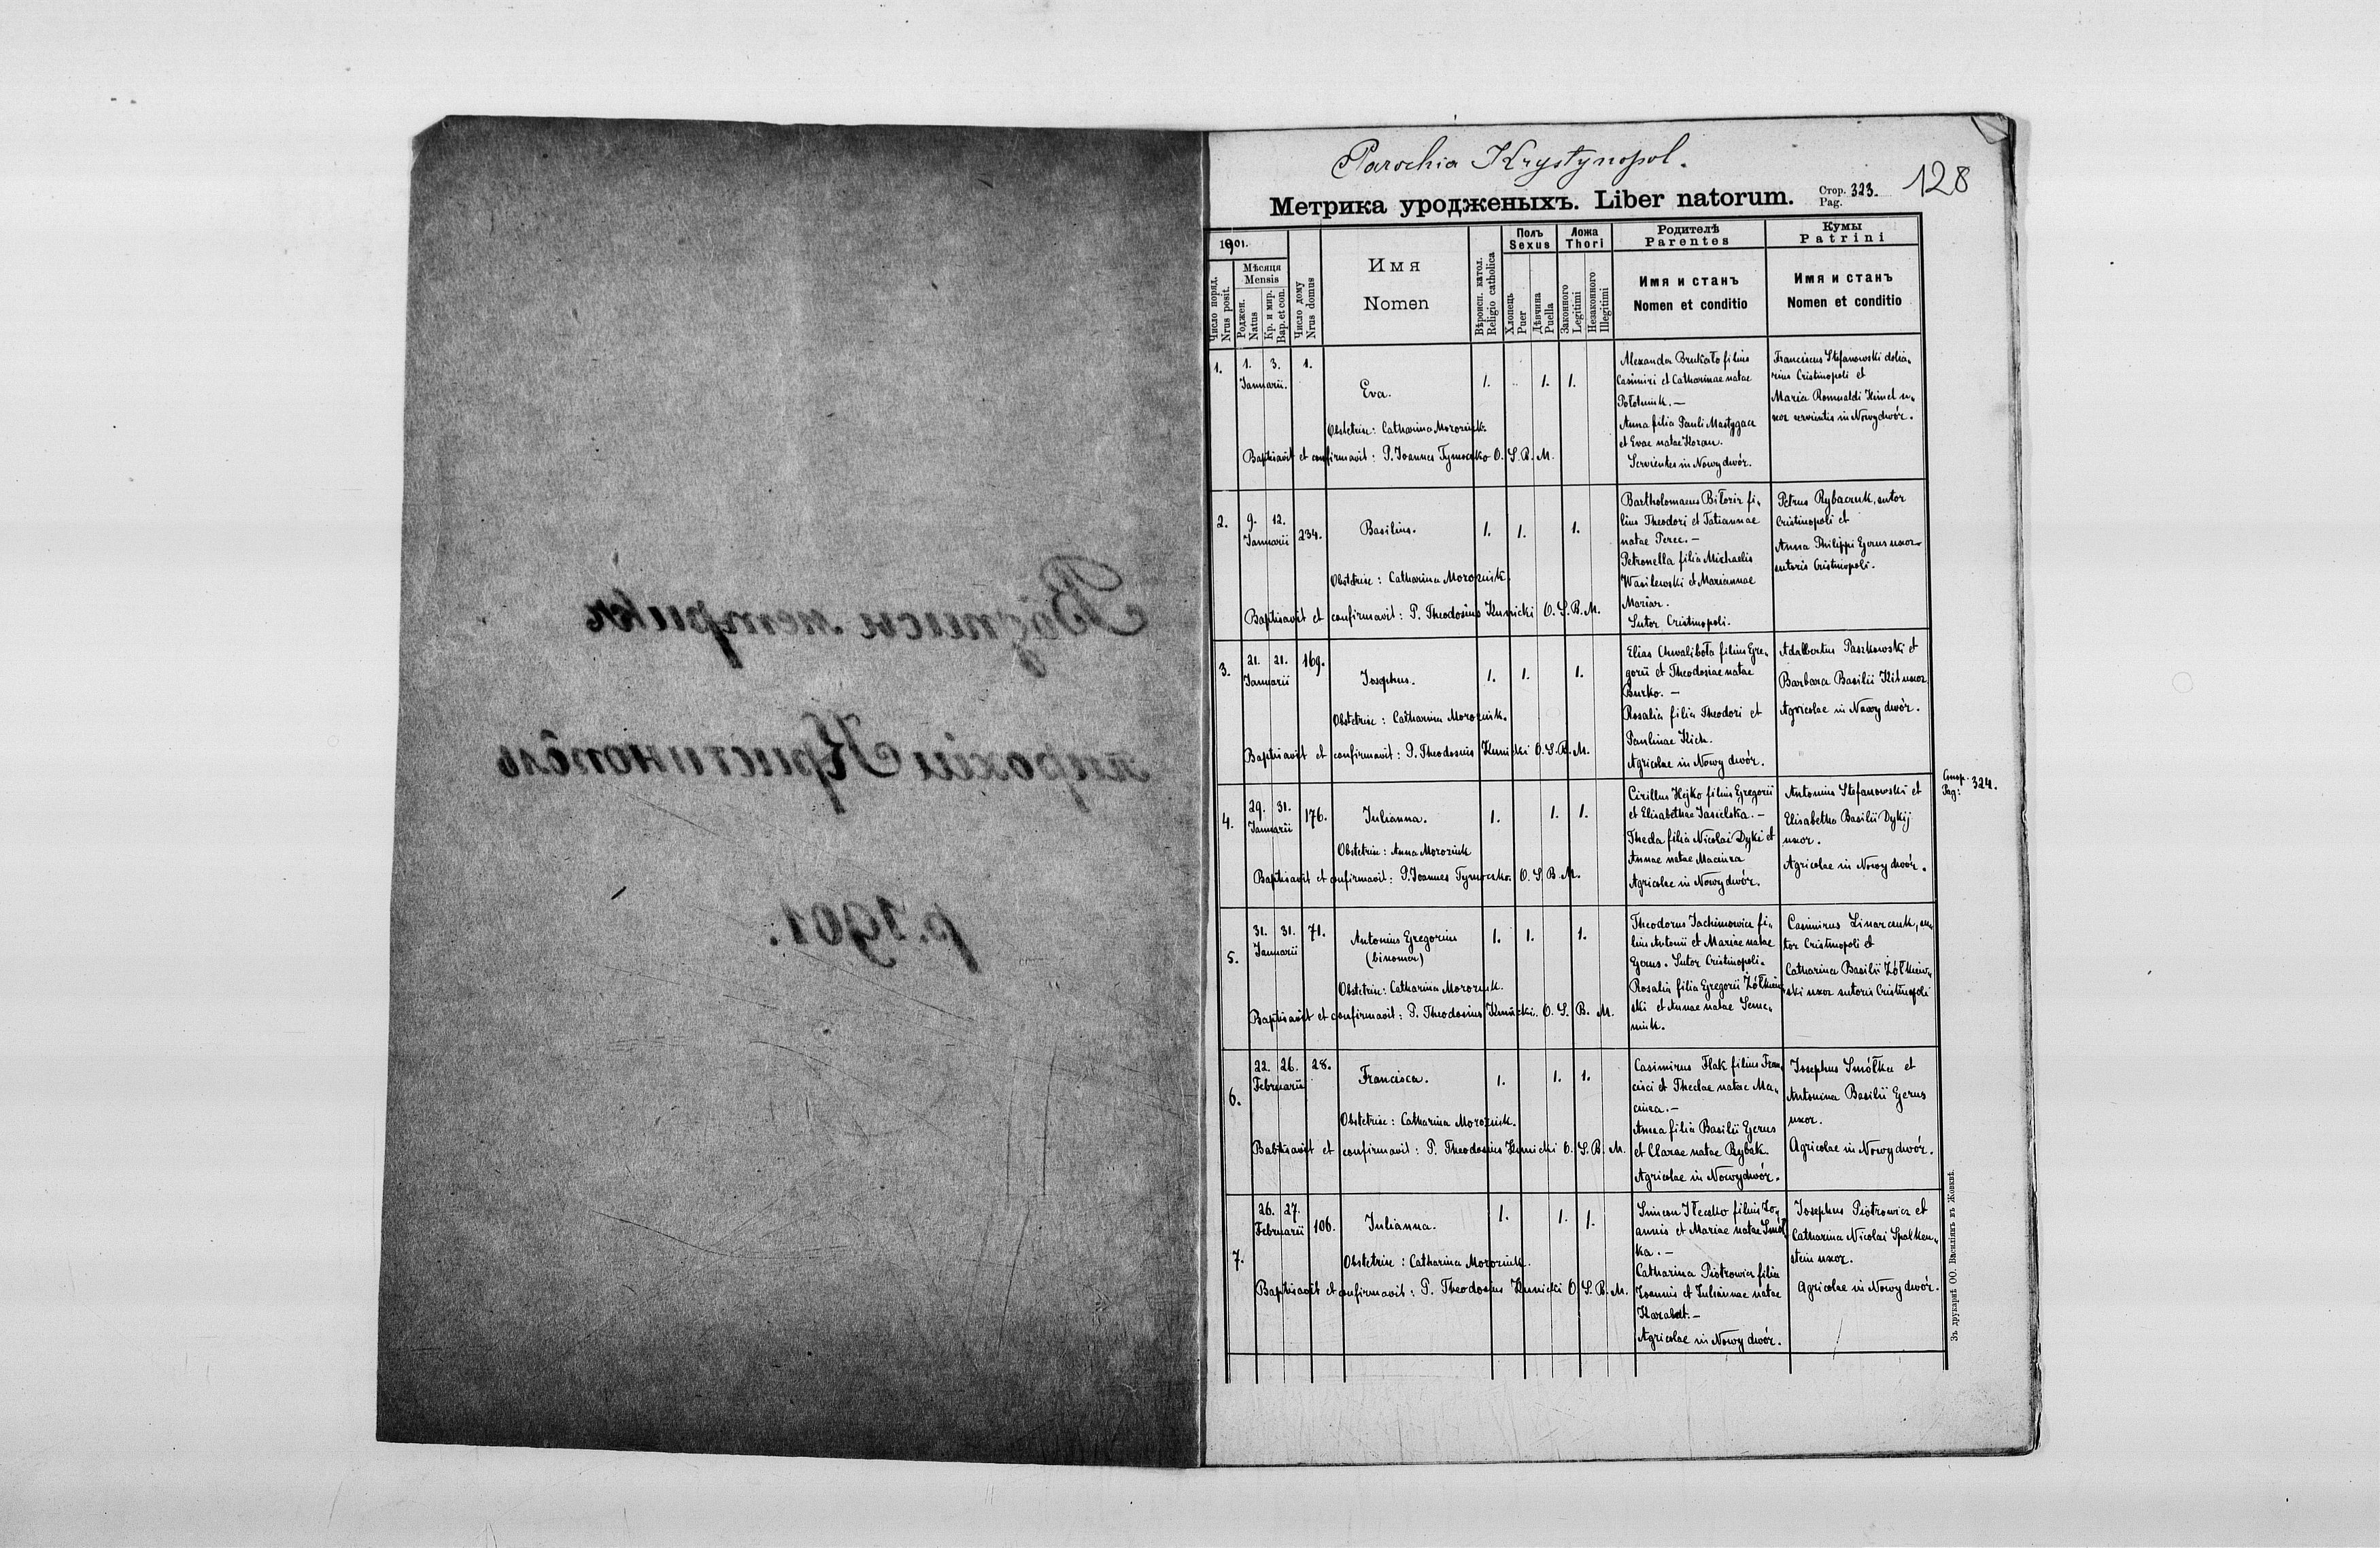 Вôдписи метрикъ
парохіи Кристинополь
р. 1901.
Parochia Krystynopol.
128
Метрика уродженыхъ. Liber natorum.
Стор. 323.
Pag.
1901.
Число поряд.
Nrus posit.
Мѣсяця
Mensis
Роджен.
Natus
Кр. и мир.
Bap. et con.
Число дому
Nrus domus
Имя
Nomen
Вѣроисп. катол.
Religio catholica
Полъ
Sexus
Хлопець
Puer
Дѣвчина
Puella
Ложа
Thori
Законного
Legitimi
Незаконного
Illegitimi
Родителѣ
Parentes
Имя и станъ
Nomen et conditio
Кумы
Patrini
Имя и станъ
Nomen et conditio
1. 1. 3. 1.
Januarii.
Eva.
1. 1. 1.
Obstetrix: Catharina Moroziuk.
Baptisavit et confirmavit: P. Joannes Tymoczko O. S. B. M.
Alexander Brukało filius
Casimiri et Catharinae natae
Połotniuk. —
Anna filia Pauli Mastygacz
et Evae natae Kozan.
Servientes in Nowydwór.
Franciscus Stefanowski dolia-
rius Cristinopoli et
Maria Romualdi Kimet u-
xor servientis in Nowydwór.
2. 9. 12. 234.
Januarii
Basilius.
1. 1. 1.
Obstetrix: Catharina Moroziuk.
Baptisavit et confirmavit: P. Theodosius Kunicki O. S. B. M.
Bartholomaeus Biłozir fi-
lius Theodori et Tatiannae
natae Perec. —
Petronella filia Michaelis
Wasilewski et Mariannae
Maziar.
Sutor Cristinopoli.
Petrus Rybaczuk, sutor
Cristinopoli et
Anna Philippi Gerus uxor
sutoris Cristinopoli.
3. 21. 21. 169.
Januarii
Josephus.
1. 1. 1.
Obstetrix: Catharina Moroziuk.
Baptisavit et confirmavit: P. Theodosius Kunicki O. S. B. M.
Elias Chwalibota filius Gre-
gorii et Theodosiae natae
Burko. —
Rosalia filia Theodori et
Paulinae Kich.
Agricolae in Nowy dwór.
Adalbertus Paszkowski et
Barbara Basilii Kit uxor
Agricolae in Nowy dwór.
4. 29. 31. 176.
Januarii
Julianna.
1. 1. 1.
Obstetrix: Anna Moroziuk
Baptisavit et confirmavit: P. Joannes Tymoczko. O. S. B. M.
Cirillus Hejko filius Gregorii
et Elisabethae Jasielska. —
Theda filia Nicolai Dyki et
Annae natae Maciura
Agricolae in Nowydwór.
Antonius Stefanowski et
Elisabetha Basilii Dykij
uxor.
Agricolae in Nowy dwór.
Стор.
Pag: 324.
5. 31. 31. 71.
Januarii
Antonius Gregorius
(binomen)
1. 1. 1.
Obstetrix: Catharina Moroziuk.
Baptisavit et confirmavit: P. Theodosius Kunicki. O. S. B. M.
Theodorus Jachimowicz fi-
lius Antonii et Mariae natae
Gerus. Sutor Cristinopoli.
Rosalia filia Gregorii Żółkiew-
ski et Annae natae Seme-
niuk.
Casimirus Linarczuk, su-
tor Cristinopoli et
Catharina Basilii Żółkiew-
ski uxor sutoris Cristinopoli
6. 22. 26. 28.
Februarii
Francisca.
1. 1. 1.
Obstetrix: Catharina Moroziuk.
Babtisavit et confirmavit: P. Theodosius Kunicki O. S. B. M.
Casimirus Flak filius Fran-
cisci et Thedae natae Ma-
ciura. —
Anna filia Basilii Gerus
et Clarae natae Rybak.
Agricolae in Nowydwór.
Josephus Smółka et
Antonina Basilii Gerus
uxor.
Agricolae in Nowydwór.
7. 26. 27. 106.
Februarii
Julianna.
1. 1. 1.
Obstetrix: Catharina Moroziuk.
Baptisavit et confirmavit: P. Theodosius Kunicki O. S. B. M.
Simeon Kłeczko filius Jo-
annis et Mariae natae Smół-
ka. —
Catharina Piotrowicz filia
Joannis et Juliannae natae
Karabat. —
Agricolae in Nowy dwór.
Josephus Piotrowicz et
Catharina Nicolai Spalken-
stein uxor.
Agricolae in Nowy dwór.
Зъ друкарнѣ ОО. Василіянъ въ Жовквѣ.